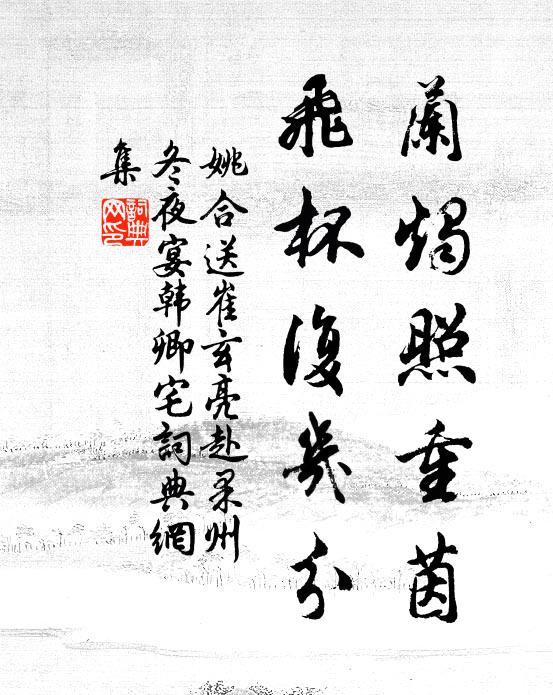 蘭燭照重茵
飛杯復幾分
姚合送崔玄亮赴果州
冬夜宴韩卿宅詞典網
集
詞典
网印